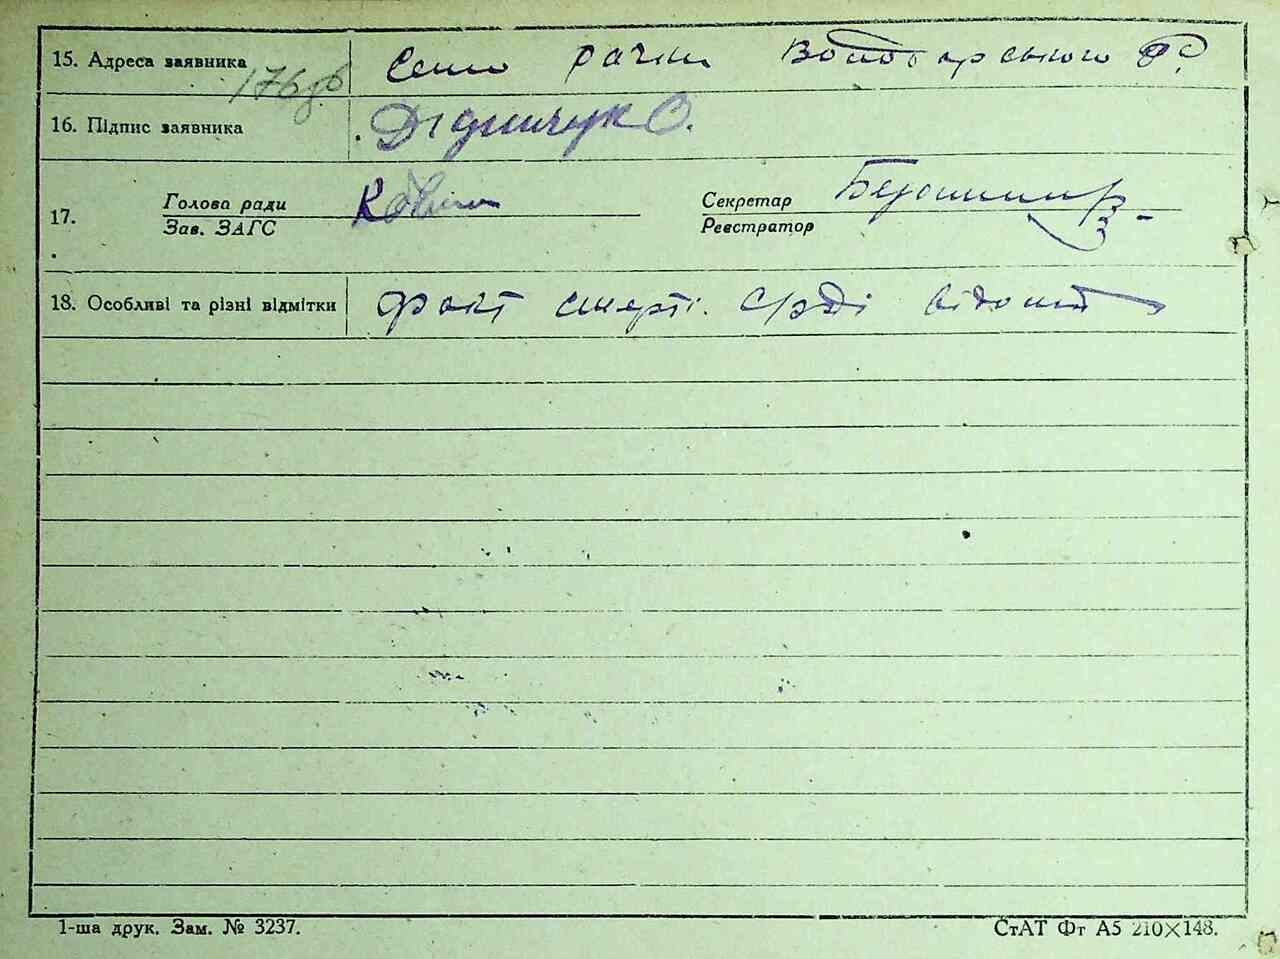 15. Адреса заявника Село рачки Волод арського Р.
176зв
16. Підпис заявника Дідничук О.
17. Голова ради Секретар
Зав. ЗАГС Реєстратор
18. Особливі та різні відмітки факт смерті. сраді відомий
1-ша друк. Зам. № 3237. СтАТ Фт А5 210×148.